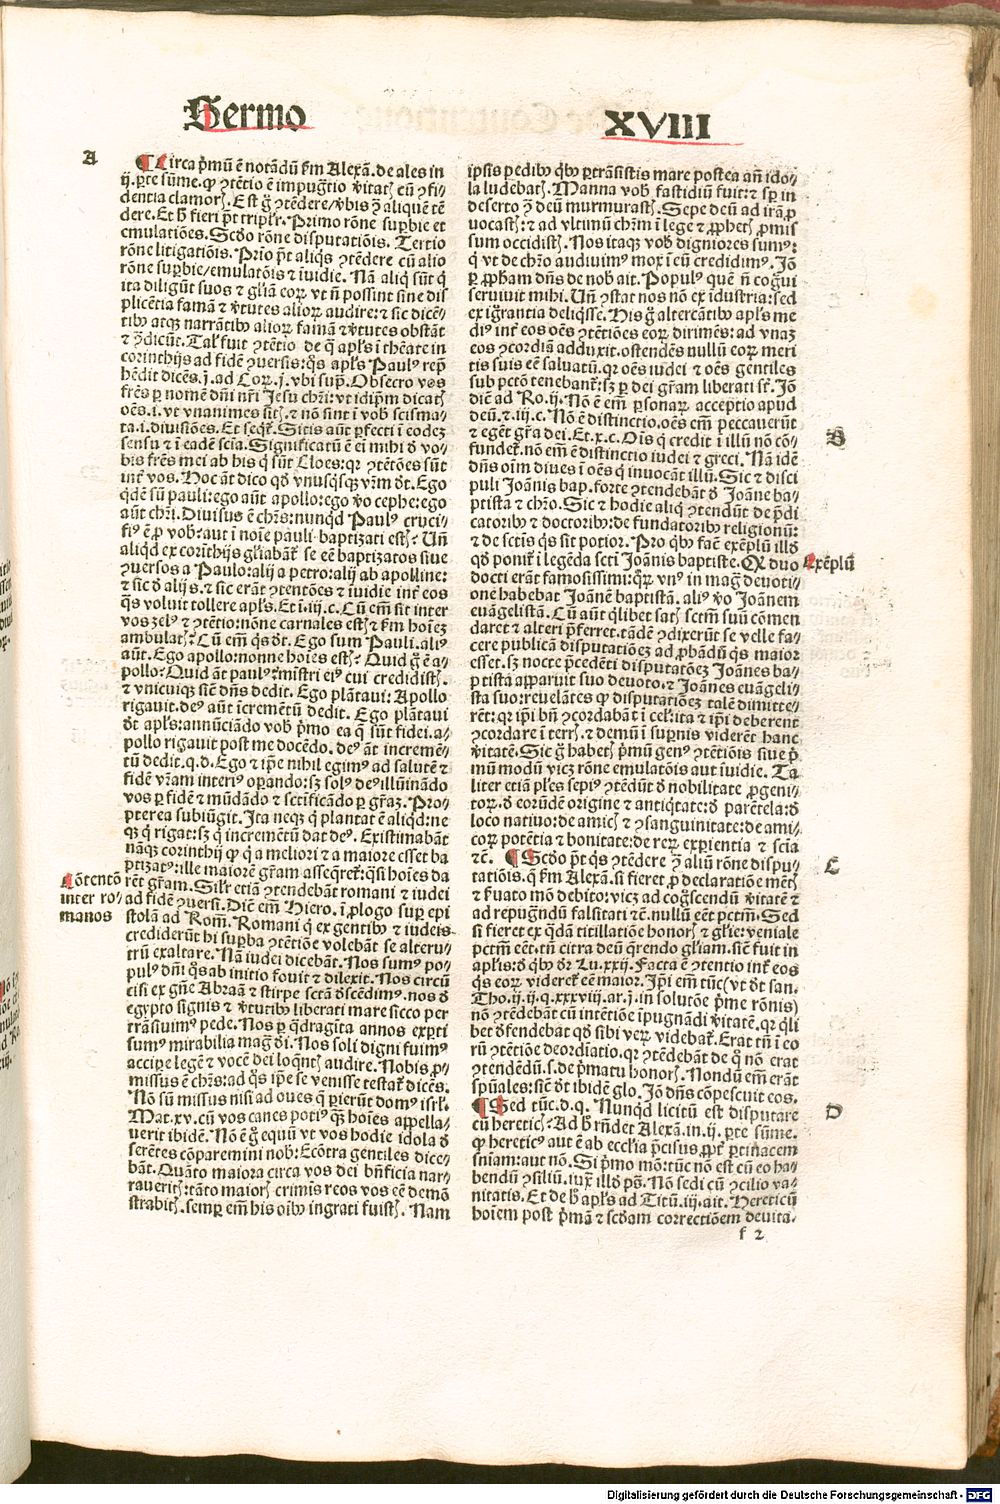 Sermo XVIII
A
¶ Circa p̄mū ē notādū ẜm Alexā. de ales in
ij. ꝑte sūme. ꝙ ꝯtētio ē impugtio v̄itatꝭ cū ꝯfi⸗
dentia clamorꝭ. Est ḡ ꝯtēdere/v̄bis ꝯ̄ aliquē tē
dere. Et h̄ fieri pt̄ triplr̄. Primo rōne suꝑbie et
emulatiōes. Scd̓o rōne disputatiōis. Tertio
rōne litigatiōis. Prīo pt̄ aliqͥs ꝯtēdere cū alio
rōne suꝑbie/emulatōis ⁊ īuidie. Nā aliqͥ sūt qͥ
ita diligūt suos ⁊ gl̓iā eoꝝ vt nō possint sine dis
plicētia famā ⁊ v̓tutes alioꝝ audire: ⁊ sic dicē⸗
tibꝰ atqꝫ narrātibꝰ alioꝝ famā ⁊ v̓tutes obstāt
⁊ ꝯ̄dicūt. Tal̓ fuit ꝯtētio de q̄ apl̓s ī th̓eate in
corinthijs ad fidē ꝯuersis: qͦs apl̓s Paulꝰ rep̄
hēdit dicēs. j. ad Coꝝ. j. vbi sup̄. Obsecro vos
fr̄es ꝑ nomē dn̄i nr̄i Jesu chr̄i: vt idip̄m dicatꝭ
oēs. i. vt vnanimes sitꝭ. ⁊ nō sint ī vob̓ scisma⸗
ta. i. diuisiōes. Et seqͥt̓. Sitis aūt ꝑfecti ī eodeꝫ
sensu ⁊ ī eadē scīa. Significatū ē ei mihi d̓ vo⸗
bis fr̄es mei ab his qͥ sūt Cloes: qꝛ ꝯtētōes sūt
int̓ vos. Hoc āt dico qd̓ vnusqͥsqꝫ vr̄m d̓t. Ego
qdē sū pauli: ego aūt apollo: ego v̓o cephe: ego
aūt chr̄i. Diuisus ē chr̄s: nunqͥd Paulꝰ cruci⸗
fiꝰ ē ꝓ vob̓: aut ī noīe pauli baptizati estꝭ? Un̄
aliqd̓ ex corīthijs gl̓iabāt̓ se eē baptizatos siue
ꝯuersos a Paulo: alij a petro: alij ab apolline:
⁊ sic d̓ alijs. ⁊ sic erāt ꝯtentōes ⁊ īuidie int̓ eos
qͣs voluit tollere apl̓s. Et ī. iij. c. Cū em̄ sit inter
vos zelꝰ ⁊ ꝯtētio: nōne carnales estꝭ ⁊ ẜm hoīeꝫ
ambulatꝭ? Cū em̄ qͥs d̓t. Ego sum Pauli. aliꝰ
aūt. Ego apollo: nonne hoīes estꝭ? Quid g̓ ē a⸗
pollo? Quid āt paulꝰ? mīstri eiꝰ cui credidistꝭ.
⁊ vnicuiqꝫ sic̄ dn̄s dedit. Ego plātaui: Apollo
rigauit. deꝰ aūt īcremētū dedit. Ego plātaui
d̓t apl̓s: annūciādo vob̓ p̄mo ea qͥ sūt fidei. a⸗
pollo rigauit post me docēdo. deꝰ āt incremē⸗
tū dedit. q. d. Ego ⁊ ip̄e nihil egimꝰ ad salutē ⁊
fidē vr̄am interiꝰ oꝑando: sꝫ solꝰ deꝰ illūināndo
vos ꝑ fidē ⁊ mūdādo ⁊ sctificādo ꝑ gr̄aꝫ. Pro⸗
pterea subiūgit. Ita neqꝫ qͥ plantat ē aliqd̓: ne
qꝫ qͥ rigat: sꝫ qͥ incremētū dat deꝰ. Existimabāt
nāqꝫ corinthij ꝙ qͥ a meliori ⁊ a maiore esset ba
ptizatꝰ: ille maiorē gr̄am asseqret̓: qͣsi hoīes da
rēt gr̄am. Sil̓r etiā ꝯtendebāt romani ⁊ iudei
ad fidē ꝯuersi. Dic̄ em̄ Hiero. ī ꝓlogo suꝑ epi
stolā ad Rom̄. Romani qͥ ex gentibꝰ ⁊ iudeis
crediderūt hi suꝑba ꝯtētiōe volebāt se alteru⸗
trū exaltare. Nā iudei dicebāt. Nos sumꝰ po⸗
pulꝰ dn̄i qͦs ab initio fouit ⁊ dilexit. Nos circū
cisi ex gn̄e Abraā ⁊ stirpe sctā d̓scēdimꝰ. nos d̓
egypto signis ⁊ v̓tutibꝰ liberati mare sicco per
trāsiuimꝰ pede. Nos ꝑ qͣdragīta annos exꝑti
sumꝰ mirabilia mag̓ dī. Nos soli digni fuimꝰ
accipe legē ⁊ vocē dei loqn̄tꝭ audire. Nobis ꝓ⸗
missus ē chr̄s: ad qͦs ip̄e se venisse testat̓ dicēs.
Nō sū missus nisi ad oues qͥ ꝑierūt domꝰ isrl̓.
Mat. xv. cū vos canes potiꝰ qͣꝫ hoīes appella⸗
uerit ibidē. Nō ē g̓ equū vt vos hodie idola d̓
serētes cōparemini nob̓: Ecōtra gentiles dice⸗
bāt. Quāto maiora circa vos dei bn̄ficia nar⸗
raueritꝭ: tāto maiorꝭ crimīs reos vos eē demō
strabitꝭ. semꝑ em̄ his oībꝰ ingrati fuistꝭ. Nam
Cōtentō
inter ro⸗
manos
ipsis pedibꝰ qͥbꝰ ꝑtrāsistis mare postea an̄ ido⸗
la ludebatꝭ. Manna vob̓ fastidiū fuit: ⁊ sꝑ in
deserto ꝯ̄ deū murmurastꝭ. Sepe deū ad irā ꝓ
vocastꝭ: ⁊ ad vltimū chr̄m ī lege ⁊ ꝓphetꝭ ꝓmis
sum occidistꝭ. Nos itaqꝫ vob̓ digniores sumꝰ:
qͥ vt de chr̄o audiuimꝰ mox ī eū credidimꝰ. Jō
ꝑ ꝓpham dn̄s de nob̓ ait. Populꝰ quē n̄ cog̓ui
seruiuit mihi. Un̄ ꝯstat nos nō ex īdustria: sed
ex ig̓rantia deliqͥsse. His g̓ altercātibꝰ apl̓s me
diꝰ int̓ eos oēs ꝯtētiōes eoꝝ dirimēs: ad vnaꝫ
eos ꝯcordiā adduxit. ostendēs nullū eoꝝ meri
tis suis eē saluatū. qꝛ oēs iudei ⁊ oēs gentiles
sub pctō tenebant̓: sꝫ ꝑ dei gr̄am liberati st̄. Jō
dic̄ ad Ro. ij. Nō ē em̄ ꝑsonaꝝ acceptio apud
deū. ⁊. iij. c. Nō ē distinctio. oēs em̄ peccauerūt
⁊ egēt gr̄a dei. Et. x. c. Oīs qͥ credit ī illū nō cō⸗
fundet̓. nō em̄ ē distinctio iudei ⁊ greci. Nā idē
dn̄s oīm diues ī oēs qͥ inuocāt illū. Sic ⁊ disci
puli Joānis bap. forte ꝯtendebāt d̓ Joāne ba⸗
ptista ⁊ chr̄o. Sic ⁊ hodie aliqͥ ꝯtendūt de p̄di
catoribꝰ ⁊ doctoribꝰ: de fundatoribꝰ religionū:
⁊ de sctis qͥs sit potior. Pro qͥbꝰ fac̄ exēplū illd̓
qd̓ ponit̓ ī legēda scti Joānis baptiste. Qd̓ duo
docti erāt famosissimi: qͦꝝ vnꝰ in mag̓ deuoti⸗
one habebat Joānē baptistā. aliꝰ v̓o Joānem
euāgelistā. Cū aūt qͥlibet satꝭ sctm̄ suū cōmen
daret ⁊ alteri p̄ferret. tādē ꝯdixerūt se velle fa⸗
cere publicā disputatiōeꝫ ad ꝓbādū qͥs maior
esset. sꝫ nocte p̄cedēti disputatōeꝫ Joānes ba⸗
ptista apparuit suo deuoto. ⁊ Joānes euāgeli⸗
sta suo: reuelātes ꝙ disputatiōeꝫ talē dimitte⸗
rēt: qꝛ ip̄i bn̄ ꝯcordabāt ī cel̓: ita ⁊ ip̄i deberent
ꝯcordare ī terrꝭ. ⁊ demū ī supnis viderēt hanc
v̓itatē. Sic g̓ habetꝭ p̄mū genꝰ ꝯtētiōis siue p̄
mū modū vicꝫ rōne emulatōis aut īuidie. Ta
liter etiā pl̓es sepiꝰ ꝯtēdūt d̓ nobilitate ꝓgeni⸗
toꝝ. d̓ eorūdē origine ⁊ antiqͥtate: d̓ parētela: d̓
loco natiuo: de amicꝭ ⁊ ꝯsanguinitate: de ami⸗
coꝝ potētia ⁊ bonitate: de reꝝ exꝑientia ⁊ scīa
⁊c̄. ¶ Scd̓o pt̄ qͥs ꝯtēdere ꝯ̄ aliū rōne dispu⸗
tatiōis. qͥ ẜm Alexā. si fieret ꝓ declaratiōe mētꝭ
⁊ ẜuato mō debito: vicꝫ ad cog̓scendū v̓itatē ⁊
ad repug̓ndū falsitati ⁊c̄. nullū eēt pctm̄. Sed
si fieret ex qͣdā titillatiōe honorꝭ ⁊ gl̓ie: veniale
pctm̄ eēt. tn̄ citra deū qͣrendo gl̓iam. sic̄ fuit in
apl̓is: d̓ qͥbꝰ dr̄ Lu. xxij. Facta ē ꝯtentio int̓ eos
qͥs eoꝝ videret̓ eē maior. Ip̄i em̄ tūc (vt d̓t san.
Tho. ij. ij. q. xxxviij. ar. j. in solutōe p̄me rōnis)
nō ꝯtēdebāt cū intētiōe īpugnādi v̓itatē. qꝛ qͥli
bet d̓fendebat qd̓ sibi veꝝ videbat̓. Erat tn̄ ī eo
rū ꝯtētiōe deordiatio. qꝛ ꝯtēdebāt de qͦ nō erat
ꝯtendēdū. s. de p̄matu honorꝭ. Nondū em̄ erāt
spūales: sic̄ d̓t ibidē glo. Jō dn̄s cōpescuit eos.
¶ Sed tūc. d. q. Nunqͥd licitū est disputare
cū hereticꝭ? Ad h̓ rn̄det Alexā. in. ij. ꝑte sūme.
ꝙ hereticꝰ aut ē ab eccl̓ia p̄cisus. ꝓpt̓ ꝑtinacem
sn̄iam: aut nō. Si p̄mo mō: tūc nō est cū eo ha⸗
bendū ꝯsiliū. iuxͣ illd̓ ps̄. Nō sedi cū ꝯcilio va⸗
nitatis. Et de h̓ apl̓s ad Titū. iij. ait. Hereticū
hoīem post p̄mā ⁊ scd̓am correctiōem deuita.
B
Exēplū
C
D
f 2
Digitalisierung gefördert durch die Deutsche Forschungsgemeinschaft - DFG